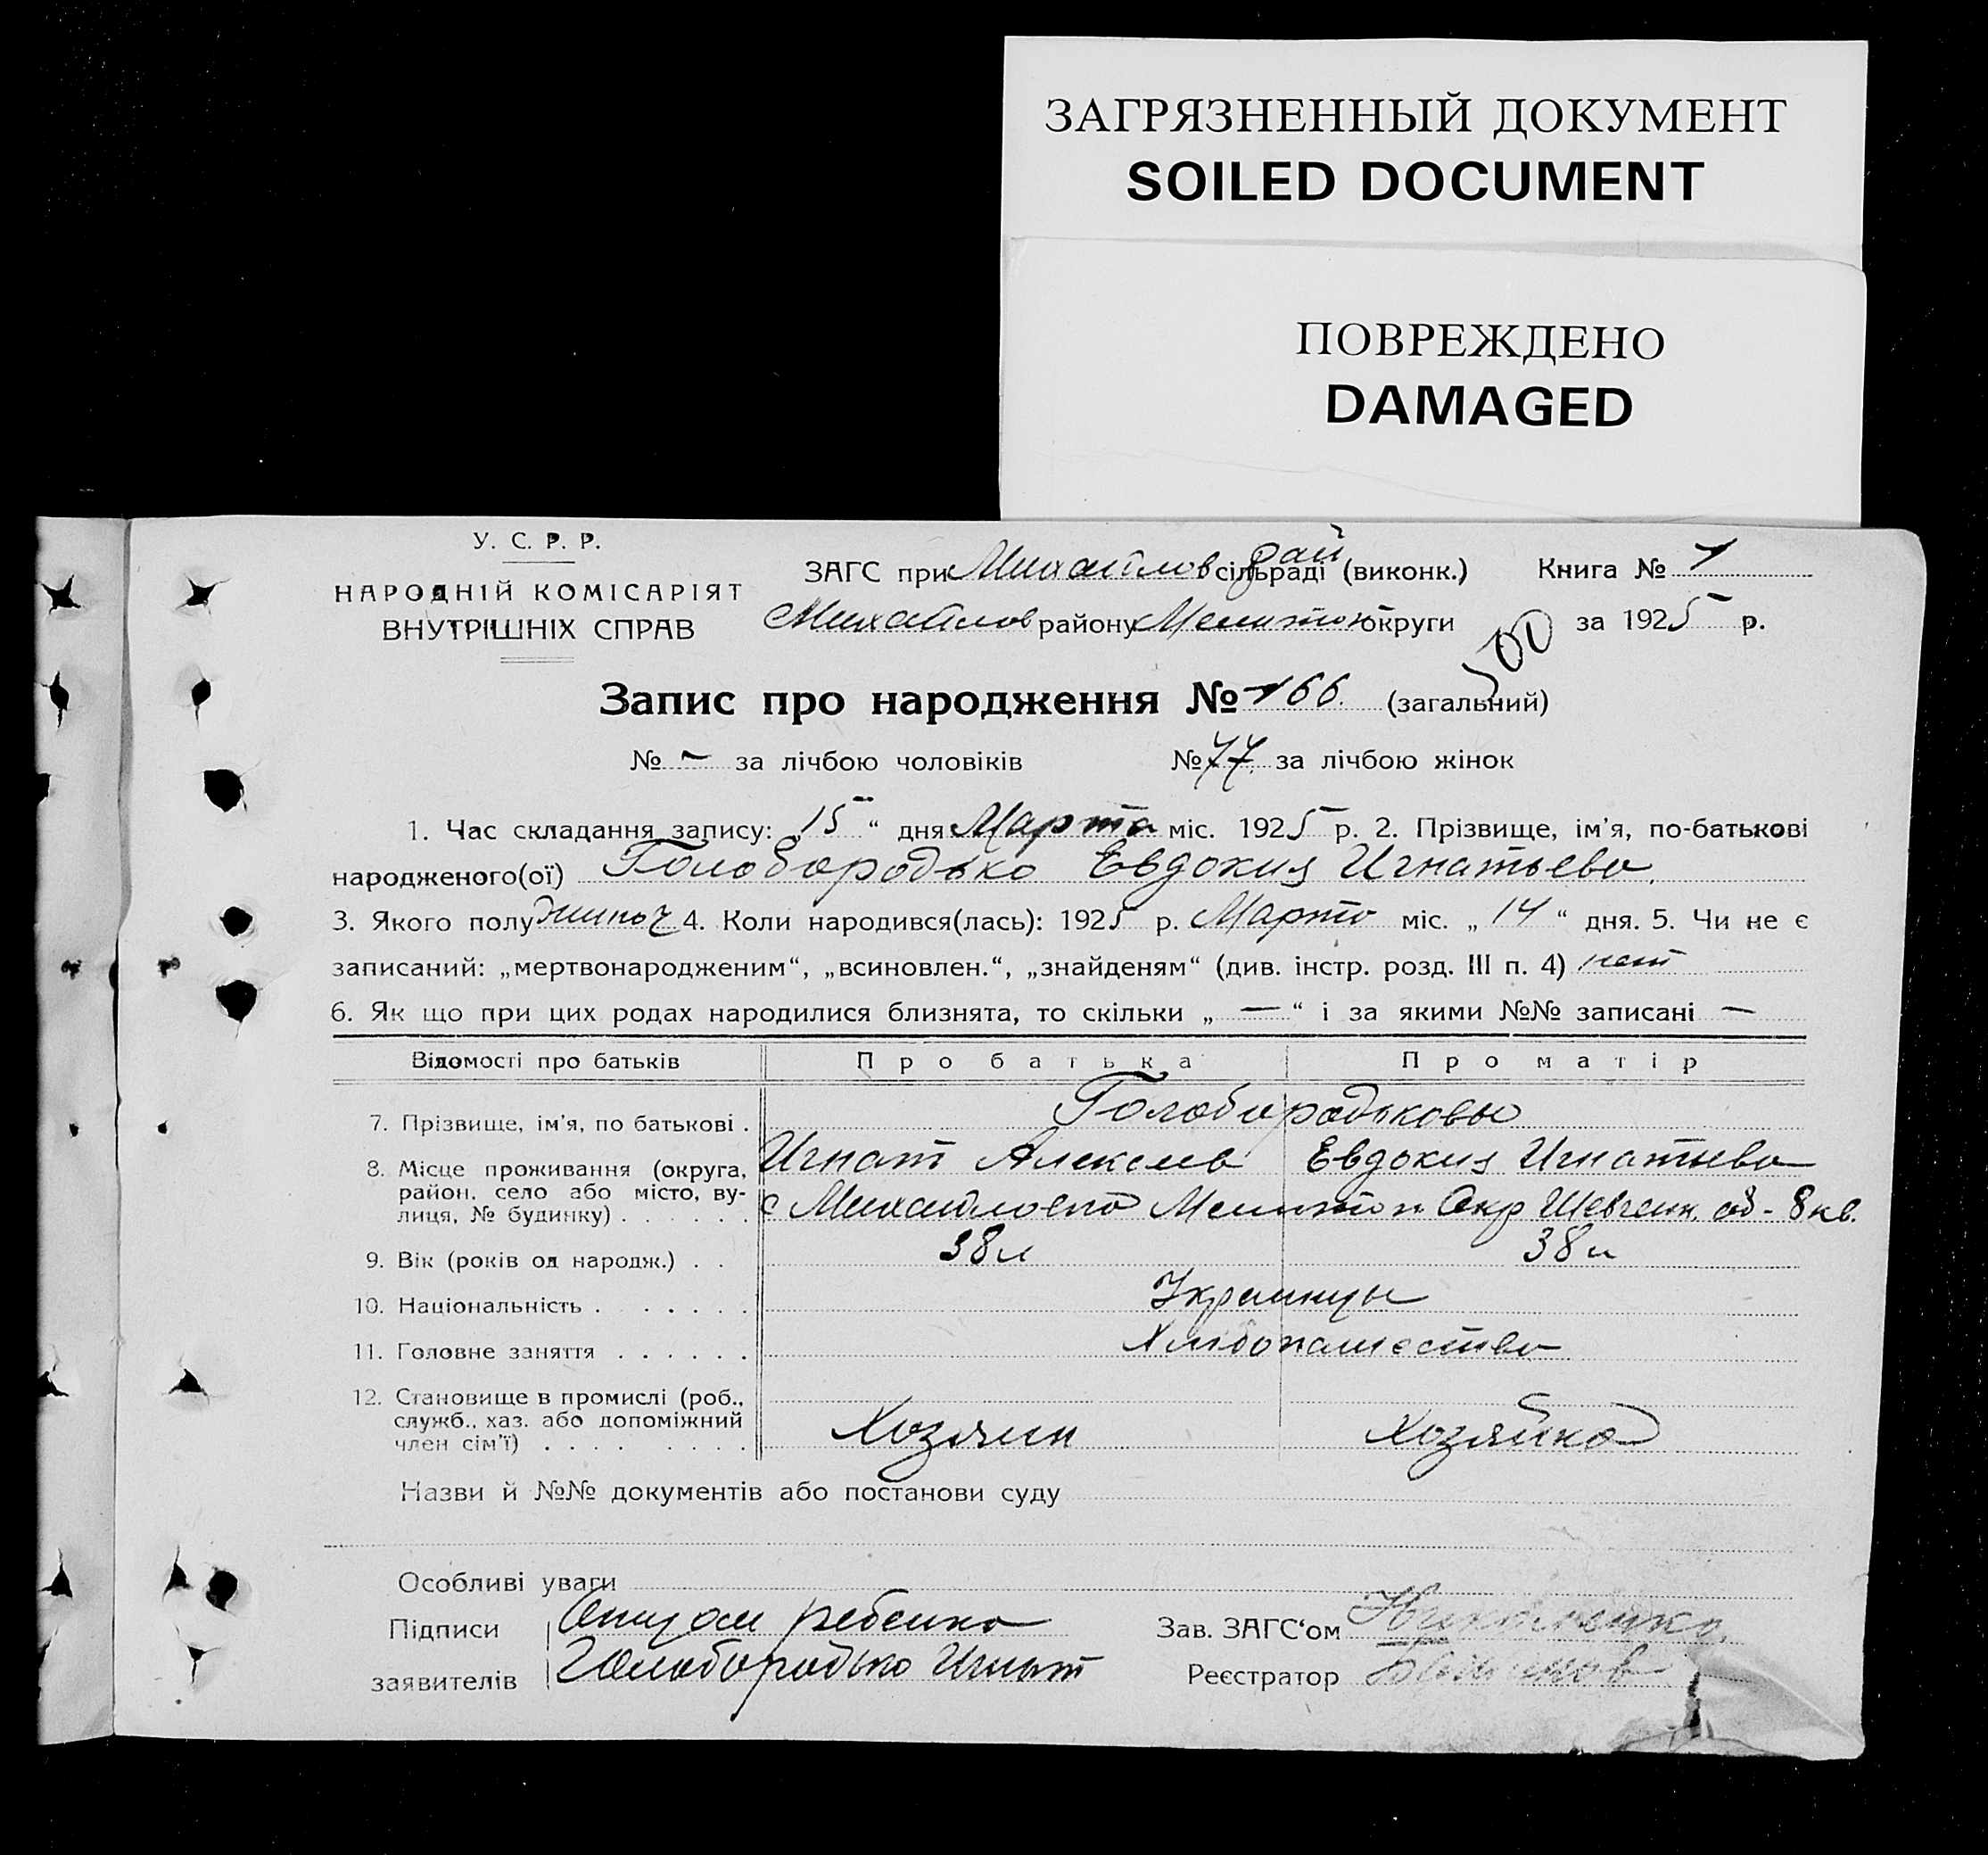 ЗАГРЯЗНЕННЫЙ ДОКУМЕНТ
SOILED DOCUMENT
ПОВРЕЖДЕНО
DAMAGED
У. С. Р. Р.
НАРОДНІЙ КОМІСАРІЯТ
ВНУТРІШНІХ СПРАВ
ЗАГС при Михайлов сільраді рай (виконк.) Книга № 1
Михайлов району Мелитоп округи за 1925 р.
100
Запис про народження № 166. (загальний)
№ - за лічбою чоловіків № 77. за лічбою жінок
1. Час складання запису: „15“ дня Марта міс. 1925 р. 2. Прізвище, ім'я, по-батькові
народженого(ої) Голобородько Евдокия Игнатьева.
3. Якого полу 4. Коли народився(лась): 1925 р. Марта міс. „14“ дня. 5. Чи не є
записаний: „мертвонародженим“, „всиновлен.“, „знайденям“ (див. інстр. розд. III п. 4) нет
6. Як що при цих родах народилися близнята, то скільки „ — “ і за якими №№ записані —
Відомості про батьків Про батька Про матір
7. Прізвище, ім'я, по батькові . Голобородьковы
8. Місце проживання (округа, Игнат Алексеев Евдокия Игнатьева
район, село або місто, ву-
лиця, № будинку) . . . . . . с Михайловка Мелитоп. Окр Шевченк. об - 8 кв.
9. Вік (років од народж.) . . 38 л 38 л
10. Національність . . . . . . Украинцы
11. Головне заняття . . . . . . Хлебопашество
12. Становище в промислі (роб.,
служб., хаз. або допоміжний
член сім'ї) . . . . . . . . Хозяин Хозяйка
Назви й №№ документів або постанови суду
Особливі уваги
Підписи Отцом ребенка Зав. ЗАГС'ом
заявителів Голобородько Игнат Реєстратор